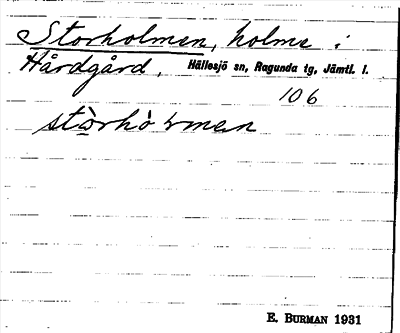 Storholmen, holme i
Hårdgård, Hällesjö sn, Ragunda tg, Jämtl. l.
106
E. BURMAN 1931